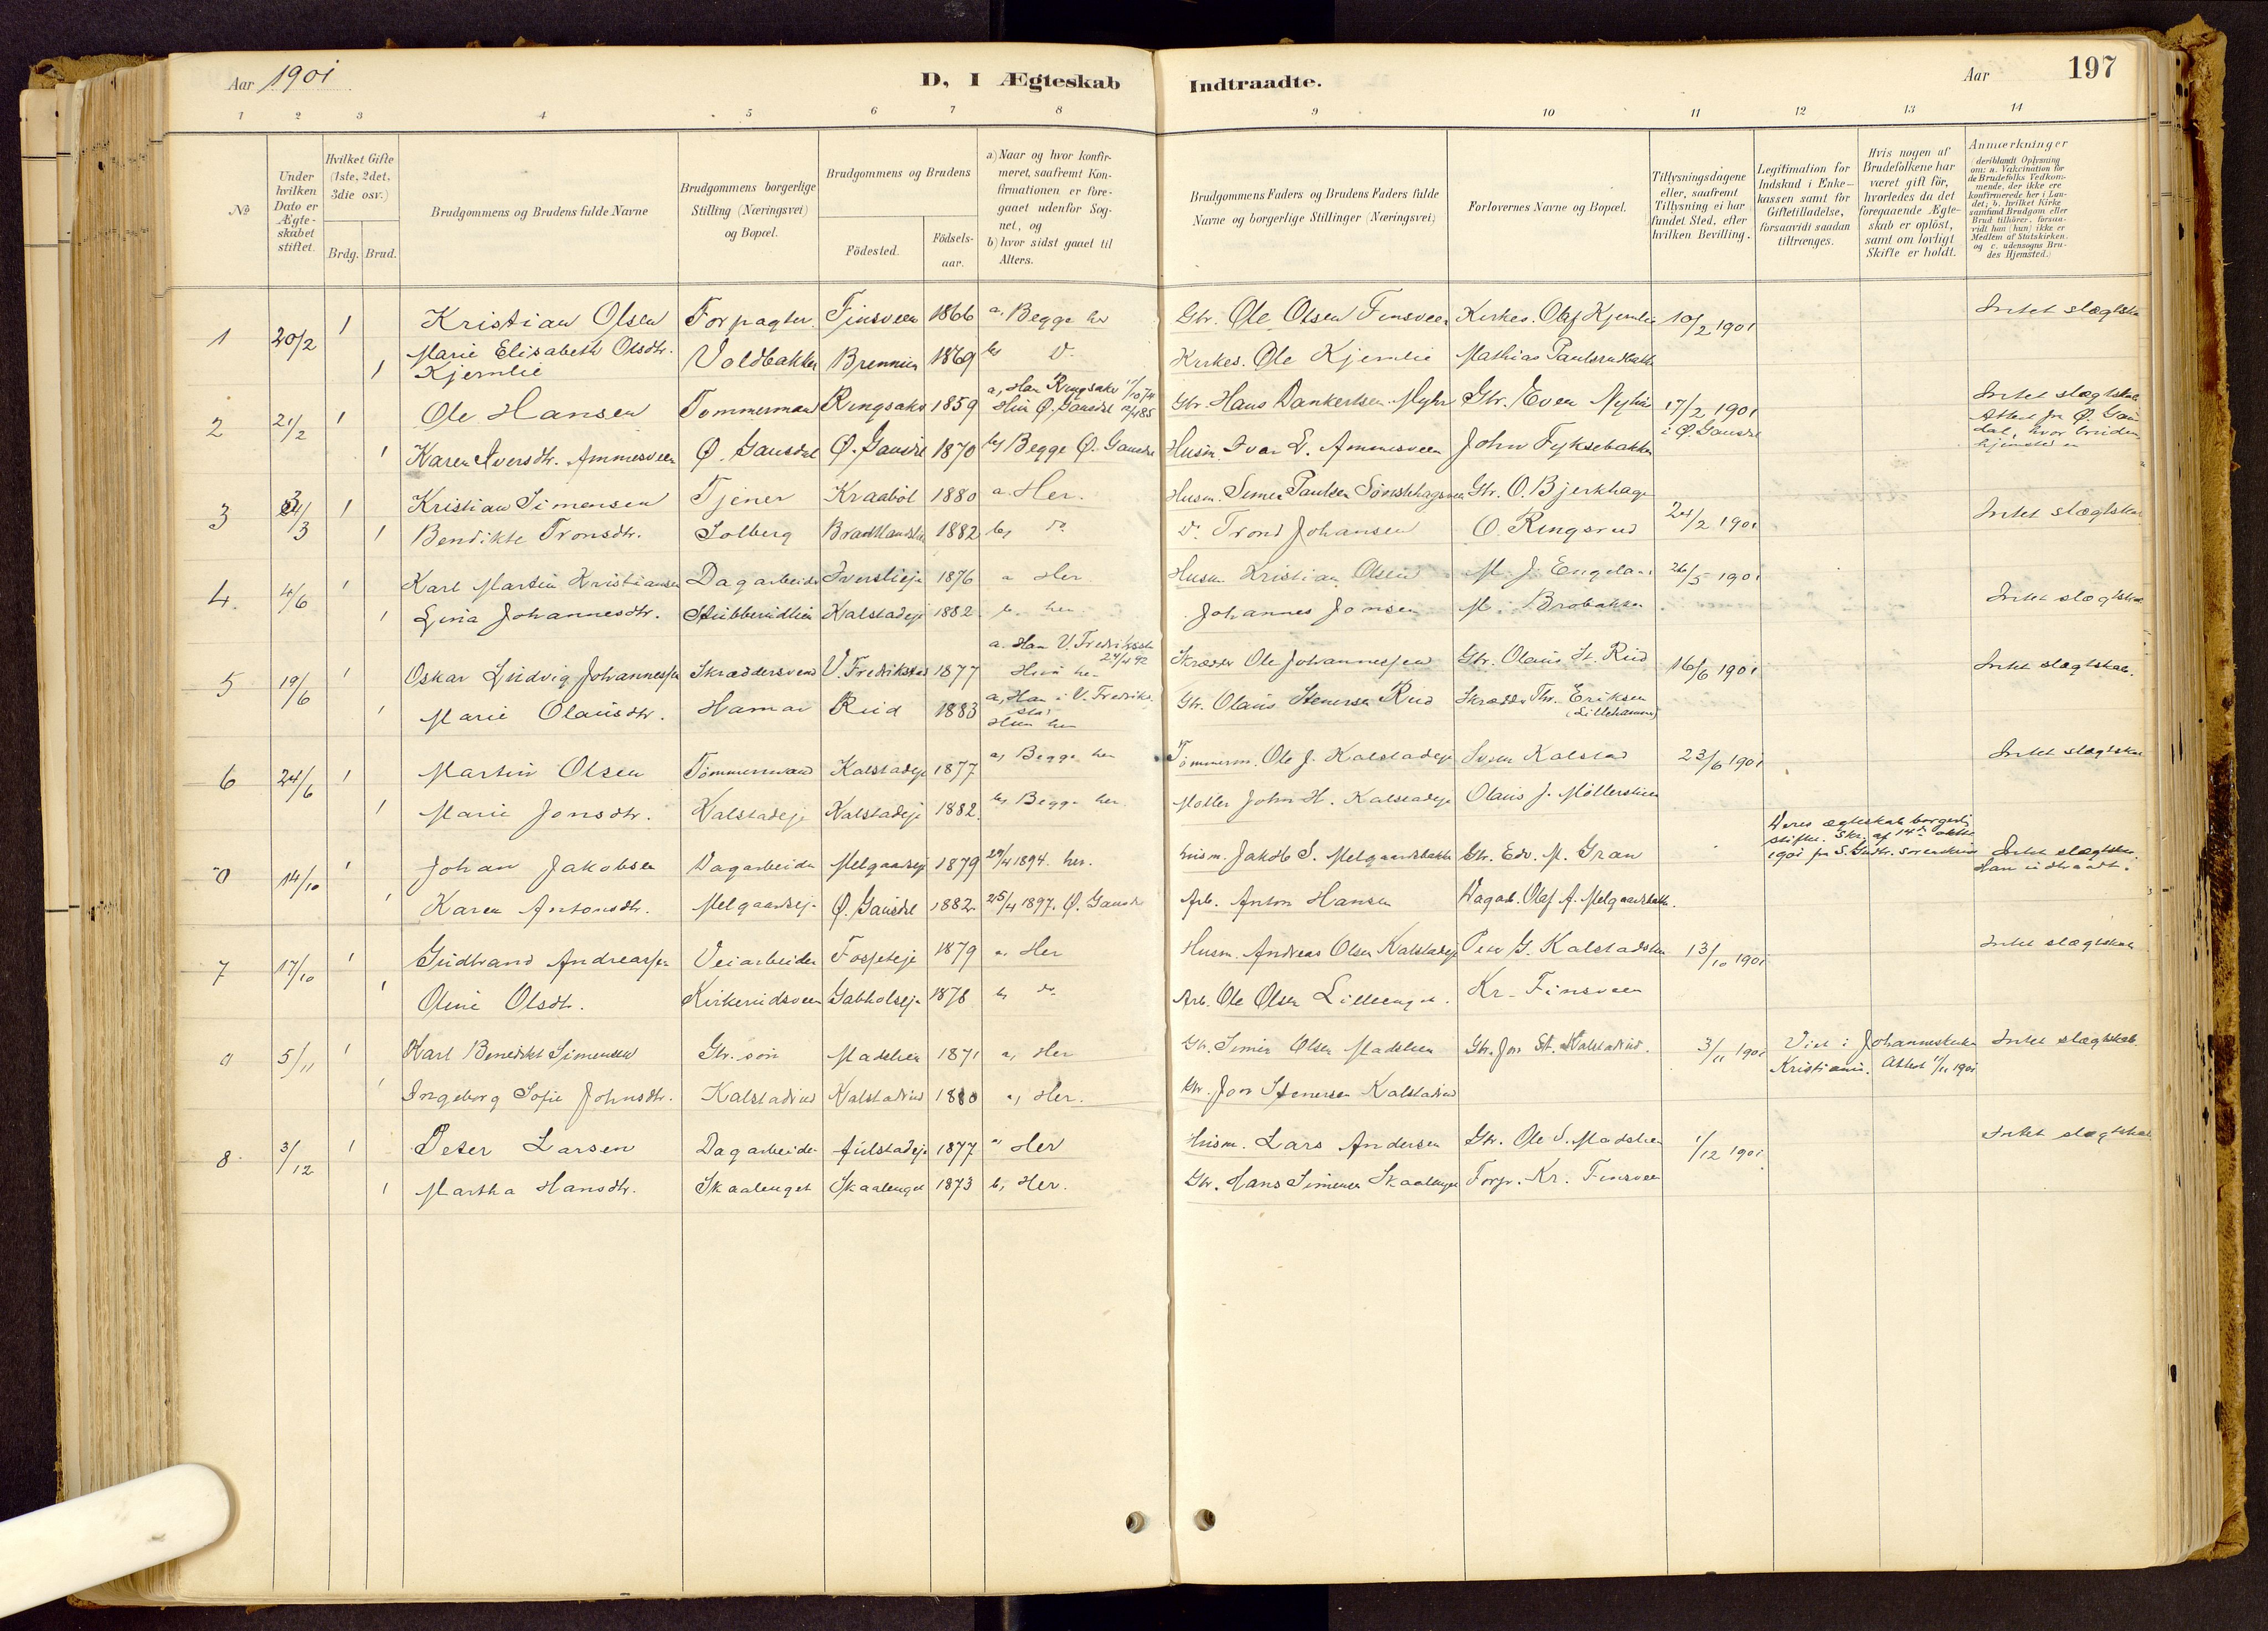 Aar 1901
D, I Ægteskab Indtraadte.
Aar 197
1 2 3 4 5 6 7 8 9 10 11 12 13 14
No
Under hvilken Dato er Ægte-skabet stiftet.
Hvilket Gifte (1ste, 2det, 3die osv.)
Brdg. Brud.
Brudgommens og Brudens fulde Navne
Brudgommens borgerlige Stilling (Næringsvei) og Bopæl.
Brudgommens og Brudens
Födested. Födsels-aar.
a) Naar og hvor konfir-meret, saafremt Kon-firmationen er fore-gaaet udenfor Sog-net, og b) hvor sidst gaaet til Alters.
Brudgommens Faders og Brudens Faders fulde Navne og borgerlige Stillinger (Næringsvei)
Forlovernes Navne og Bopæl.
Tillysningsdagene eller, saafremt Tillysning ei har fundet Sted, efter hvilken Bevilling.
Legitimation for Indskud i Enke-kassen samt for Giftetilladelse, forsaavidt saadan tiltrænges.
Hvis nogen af Brudefolkene har været gift för, hvorledes da det foregaaende Ægte-skab er oplöst, samt om lovligt Skifte er holdt.
Anmærkninger (deriblandt Oplysning om: a. Vakcination for de Brudefolks Vedkom-mende, der ikke ere konfirmerede her i Lan-det; b. hvilket Kirke samfund Brudgom eller Brud tilhörer, forsaa-vidt han (hun) ikke er Medlem af Statskirken. og c. udensogns Bru-des Hjemsted.)
1 20/2 1 Kristian Olsen Forpagter Finsveen 1866 a. Begge her Gbr. Ole Olsen Finsveen Kirkes. Olaf Kjemlie 10/2 1901 Intet slægtskab
1 Marie Elisabeth Olsdtr. Kjemlie Voldbakken 1869 b, do Kirkes. Ole Kjemlie Mathias
2 21/2 1 Ole Hansen Tømmermand Ringsaker 1859 a, Han Ringsaker Hun Ø. Gausdal Gbr. Hans Dankertsen Myhr Gbr. Even 17/2 1901 i Ø. Gausdal Intet slægtskab Attest fra Ø. Gausdal, hvor bruden hjemsted er
1 Karen Iversdtr. Ammesveen Ø. Gausdal Ø. Gausdal 1870 b, Begge Ø. Gausdal Husm. Ivar E. Ammesveen John Fyksebakken
3 1 Kristian Simensen Tjener Kraabøl 1880 a. Her. Husm. Simen Paulsen Gbr. O. Bjerkhage 24/2 1901 Intet slægtskab
1 Bendikte Tronsdtr. Solberg 1882 b, do do Trond Johansen O. Ringsrud
4. 4/6 1 Karl Martin Kristiansen Dagarbeider Iverslieje 1876 a Her Husm. Kristian Olsen M. J. Engeland 26/5 1901 Intet slægtskab
1 Lina Johannesdtr. Kalstadeje 1882. b. her. Johannes Jonsen M. Brobakken
5 19/6 1 Oskar Ludvig Johannessen Skræddersvend V. Fredrikstad 1877 a. Han V. Fredrikstad 24/4 92 Hun her Skrædder Ole Johannessen Gbr. Olaus St. Rud 16/6 1901 Intet slægtskab.
1 Marie Olausdtr. Hamar Rud 1883 a, Han i V. Fredrikstad Hun her Gbr. Olaus Stenersen Rud Skrædder Thr. Eriksen (Lillehammer)
6 24/6 1 Martin Olsen Tømmermand Kalstadeje 1877 a, Begge her Tømmerm. Ole J. Kalstadeje Iver Kalstad 23/6 1901 Intet slægtskab
1 Marie Jonsdtr. Kalstadeje Kalstadeje 1882. b, Begge her. Møller John H. Kalstadeje Olaus J. Møllerstuen
0 14/10 1 Johan Jakobsen Dagarbeider Melgaardseje 1879 29/4 1894. her. Husm. Jakob S. Melgaardsbakken Gbr. Edv. M. Gran Deres ægteskab borgerlig stiftet. Skr. af 14de oktbr. 1901 fra S. Gudbr. sorenskriver Intet slægtskab. Han udtraadt.
1 Karen Antonsdtr. Melgaardseje Ø. Gausdal 1882. 25/4 1897. Ø. Gausdal Arb. Anton Hansen Dagarb. Olaf A. Melgaardsbakken.
7 17/10 1 Gudbrand Andreassen Veiarbeider Fossheje 1879 a. Her Husm. Andreas Olsen Kalstadeje Peter G. Kalstadstuen 13/10 1901 Intet slægtskab
1 Oline Olsdtr. Kirkerudsveen Gabholseje 1878 b, do Arb. Ole Olsen Lilleenget. Kr. Finsveen
0 5/11 1 Karl Benedikt Simensen Gbr. søn Madslien 1871 a, Her Gbr. Simen Olsen Madslien Gbr. Jon St. Kalstadrud. 3/11 1901 Viet i Johanneskirken Kristiania. Attest 11/11 1901 Intet slægtskab.
1 Ingeborg Sofie Johnsdtr. Kalstadrud Kalstadrud 1880 a, Her. Gbr. Jon Stenersen Kalstadrud
8 3/12 1 Peter Larsen Dagarbeider Aulstadeje 1877 a Her Husm. Lars Andersen Gbr. Ole S. Madslien 1/12 1901. Intet slægtskab
1 Martha Hansdtr. Skaalenget Skaalenget 1873 b, Her. Gbr. Hans Simensen Skaalenget Forp. Kr. Finsveen